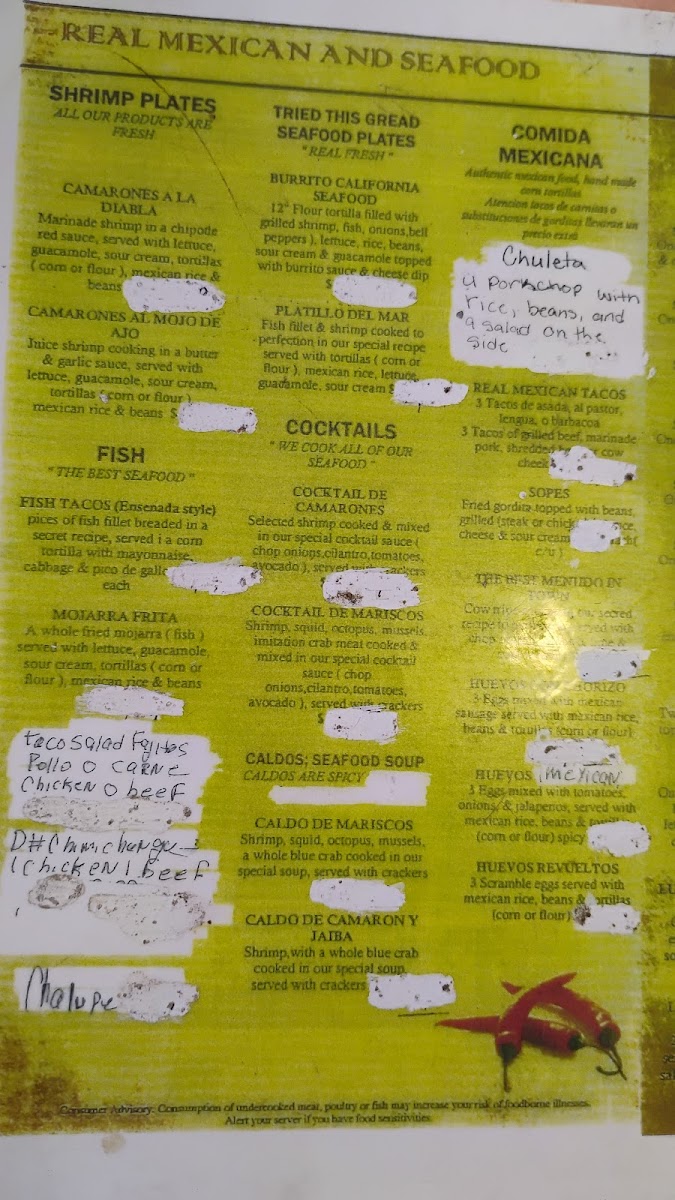 REAL MEXICAN AND SEAFOOD
SHRIMP PLATES
ALL OUR PRODUCTS ARE
FRESH
CAMARONES A LA
DIABLA
Marinade shrimp in a chipode
red sauce, served with lettuce,
guacamole, sour cream, tortillas
( corn or flour ), mexican rice &
beans
CAMARONES AL MOJO DE
AJO
Juice shrimp cooking in a butter
& garlic sauce, served with
lettuce, guacamole, sour cream,
tortillas ( corn or flour )
mexican rice & beans $
FISH
"THE BEST SEAFOOD"
FISH TACOS (Ensenada style)
pices of fish fillet breaded in a
secret recipe, served i a corn
tortilla with mayonnaise,
cabbage & pico de gallo
each
MOJARRA FRITA
A whole fried mojarra ( fish )
served with lettuce, guacamole,
sour cream, tortillas ( corn or
flour ), mexican rice & beans
tacoSalad Fajitas
Pollo o CARNE
ChickEN O bEEF
(ChickEN | bEEF
Chalupe
TRIED THIS GREAD
SEAFOOD PLATES
"REAL FRESH"
BURRITO CALIFORNIA
SEAFOOD
12" Flour tortilla filled with
grilled shrimp, fish, onions,bell
peppers ), lettuce, rice, beans,
sour cream & guacamole topped
with burrito sauce & cheese dip
$
PLATILLO DEL MAR
Fish fillet & shrimp cooked to
perfection in our special recipe
served with tortillas ( corn or
flour ), mexican rice, lettuce,
guacamole, sour cream $
COCKTAILS
"WE COOK ALL OF OUR
SEAFOOD"
COCKTAIL DE
CAMARONES
Selected shrimp cooked & mixed
in our special cocktail sauce (
chop onions,cilantro,tomatoes,
avocado ), served with crackers
COCKTAIL DE MARISCOS
Shrimp, squid, octopus, mussels,
imitation crab meat cooked &
mixed in our special cocktail
sauce ( chop
onions,cilantro,tomatoes,
avocado ), served with crackers
$
CALDOS; SEAFOOD SOUP
CALDOS ARE SPICY
CALDO DE MARISCOS
Shrimp, squid, octopus, mussels,
a whole blue crab cooked in our
special soup, served with crackers
CALDO DE CAMARON Y
JAIBA
Shrimp,with a whole blue crab
cooked in our special soup,
served with crackers
COMIDA
MEXICANA
Authentic mexican food, hand made
corn tortillas
Atencion tacos de carnitas o
substituciones de gorditas llevaran un
precio extra
Chuleta
4 Porkchop with
rice, beans, and
a salad on the
side
REAL MEXICAN TACOS
3 Tacos de asada, al pastor,
lengua, o barbacoa
3 Tacos of grilled beef, marinade
pork, shredded cow
cheek
SOPES
Fried gordita topped with beans,
grilled (steak or
cheese & sour cream
c/u )
THE BEST MENUDO IN
TOWN
Cow
HUEVOS
3 Eggs with mexican
sausage served with mexican rice,
beans & (corn or flour)
HUEVOS mexican
3 Eggs mixed with tomatoes,
onions, & jalapenos, served with
mexican rice, beans &
(corn or flour) spicy
HUEVOS REVUELTOS
3 Scramble eggs served with
mexican rice, beans & tortillas
(corn or flour)
Consumer Advisory: Consumption of undercooked meat, poultry or fish may increase your risk of foodborne illnesses.
Alert your server if you have food sensitivities.